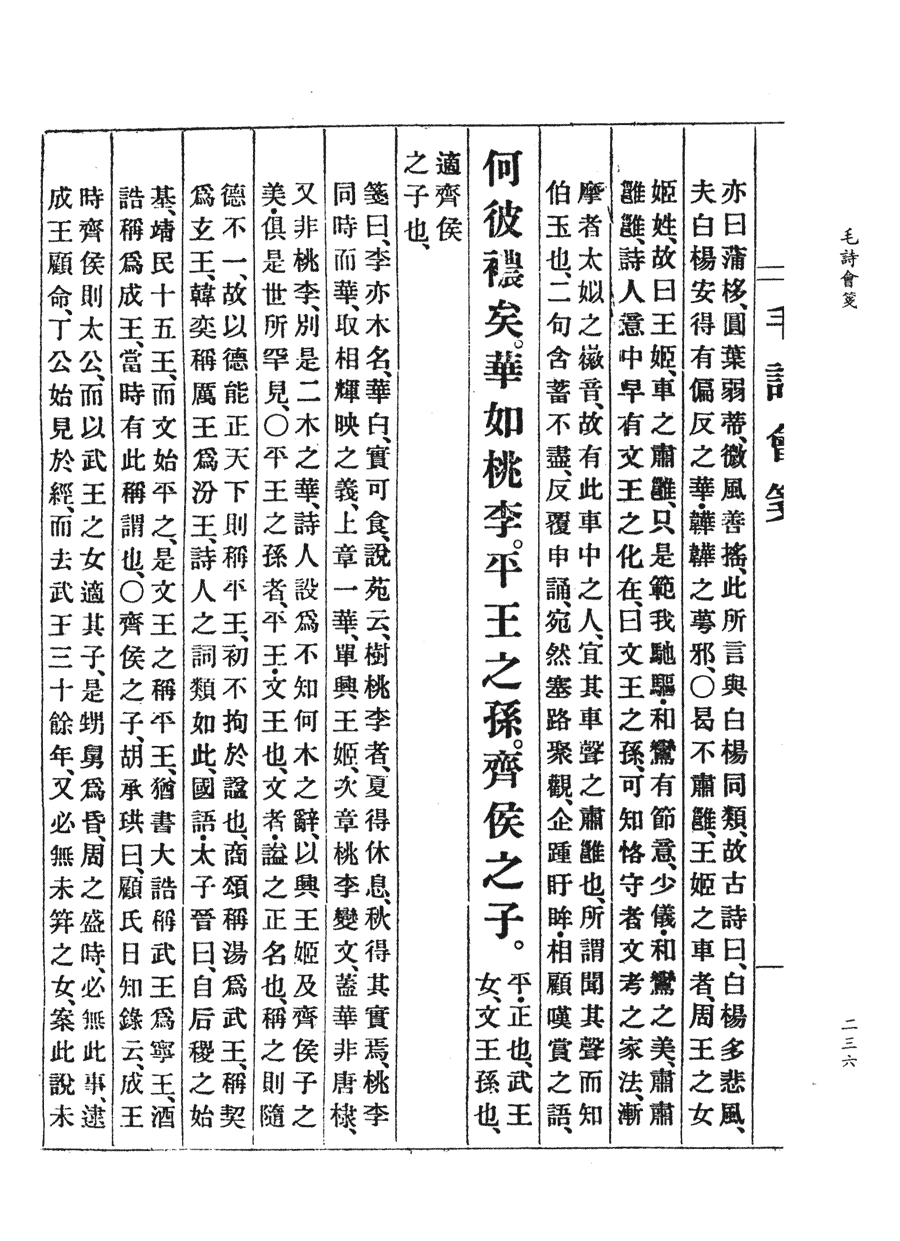 毛詩會箋
二三六
毛詩會箋
亦曰蒲栘、圓葉弱蒂、微風善搖、此所言與白楊同類、故古詩曰、白楊多悲風、
夫白楊安得有偏反之華、韡韡之蕚邪、〇曷不肅雝、王姬之車者、周王之女
姬姓、故曰王姬、車之肅雝、只是範我馳驅、和鸞有節意、少儀、和鸞之美、肅肅
雝雝、詩人意中早有文王之化在、曰文王之孫、可知恪守者文考之家法、漸
摩者太姒之徽音、故有此車中之人、宜其車聲之肅雝也、所謂聞其聲而知
伯玉也、二句含蓄不盡、反覆申誦、宛然塞路聚觀、企踵盱眸、相顧嘆賞之語、
何彼襛矣。華如桃李。平王之孫。齊侯之子。
平、正也、武王
女、文王孫也、
適齊侯
之子也、
箋曰、李亦木名、華白、實可食、說苑云、樹桃李者、夏得休息、秋得其實焉、桃李
同時而華、取相輝映之義、上章一華、單興王姬、次章桃李變文、蓋華非唐棣、
又非桃李、別是二木之華、詩人設爲不知何木之辭、以興王姬及齊侯子之
美、俱是世所罕見、〇平王之孫者、平王、文王也、文者、謚之正名也、稱之則隨
德不一、故以德能正天下則稱平王、初不拘於謚也、商頌稱湯爲武王、稱契
爲玄王、韓奕稱厲王爲汾王、詩人之詞類如此、國語、太子晉曰、自后稷之始
基、靖民十五王、而文始平之、是文王之稱平王、猶書大誥稱武王爲寧王、酒
誥稱爲成王、當時有此稱謂也、〇齊侯之子、胡承珙曰、顧氏日知錄云、成王
時齊侯則太公、而以武王之女適其子、是甥舅爲昏、周之盛時、必無此事、逮
成王顧命、丁公始見於經、而去武王三十餘年、又必無未筓之女、案此說未